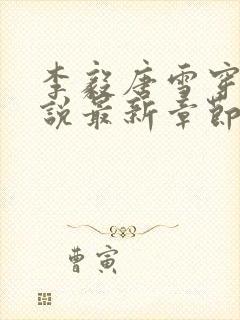 李毅唐雪穿
说最新章节
曹寅